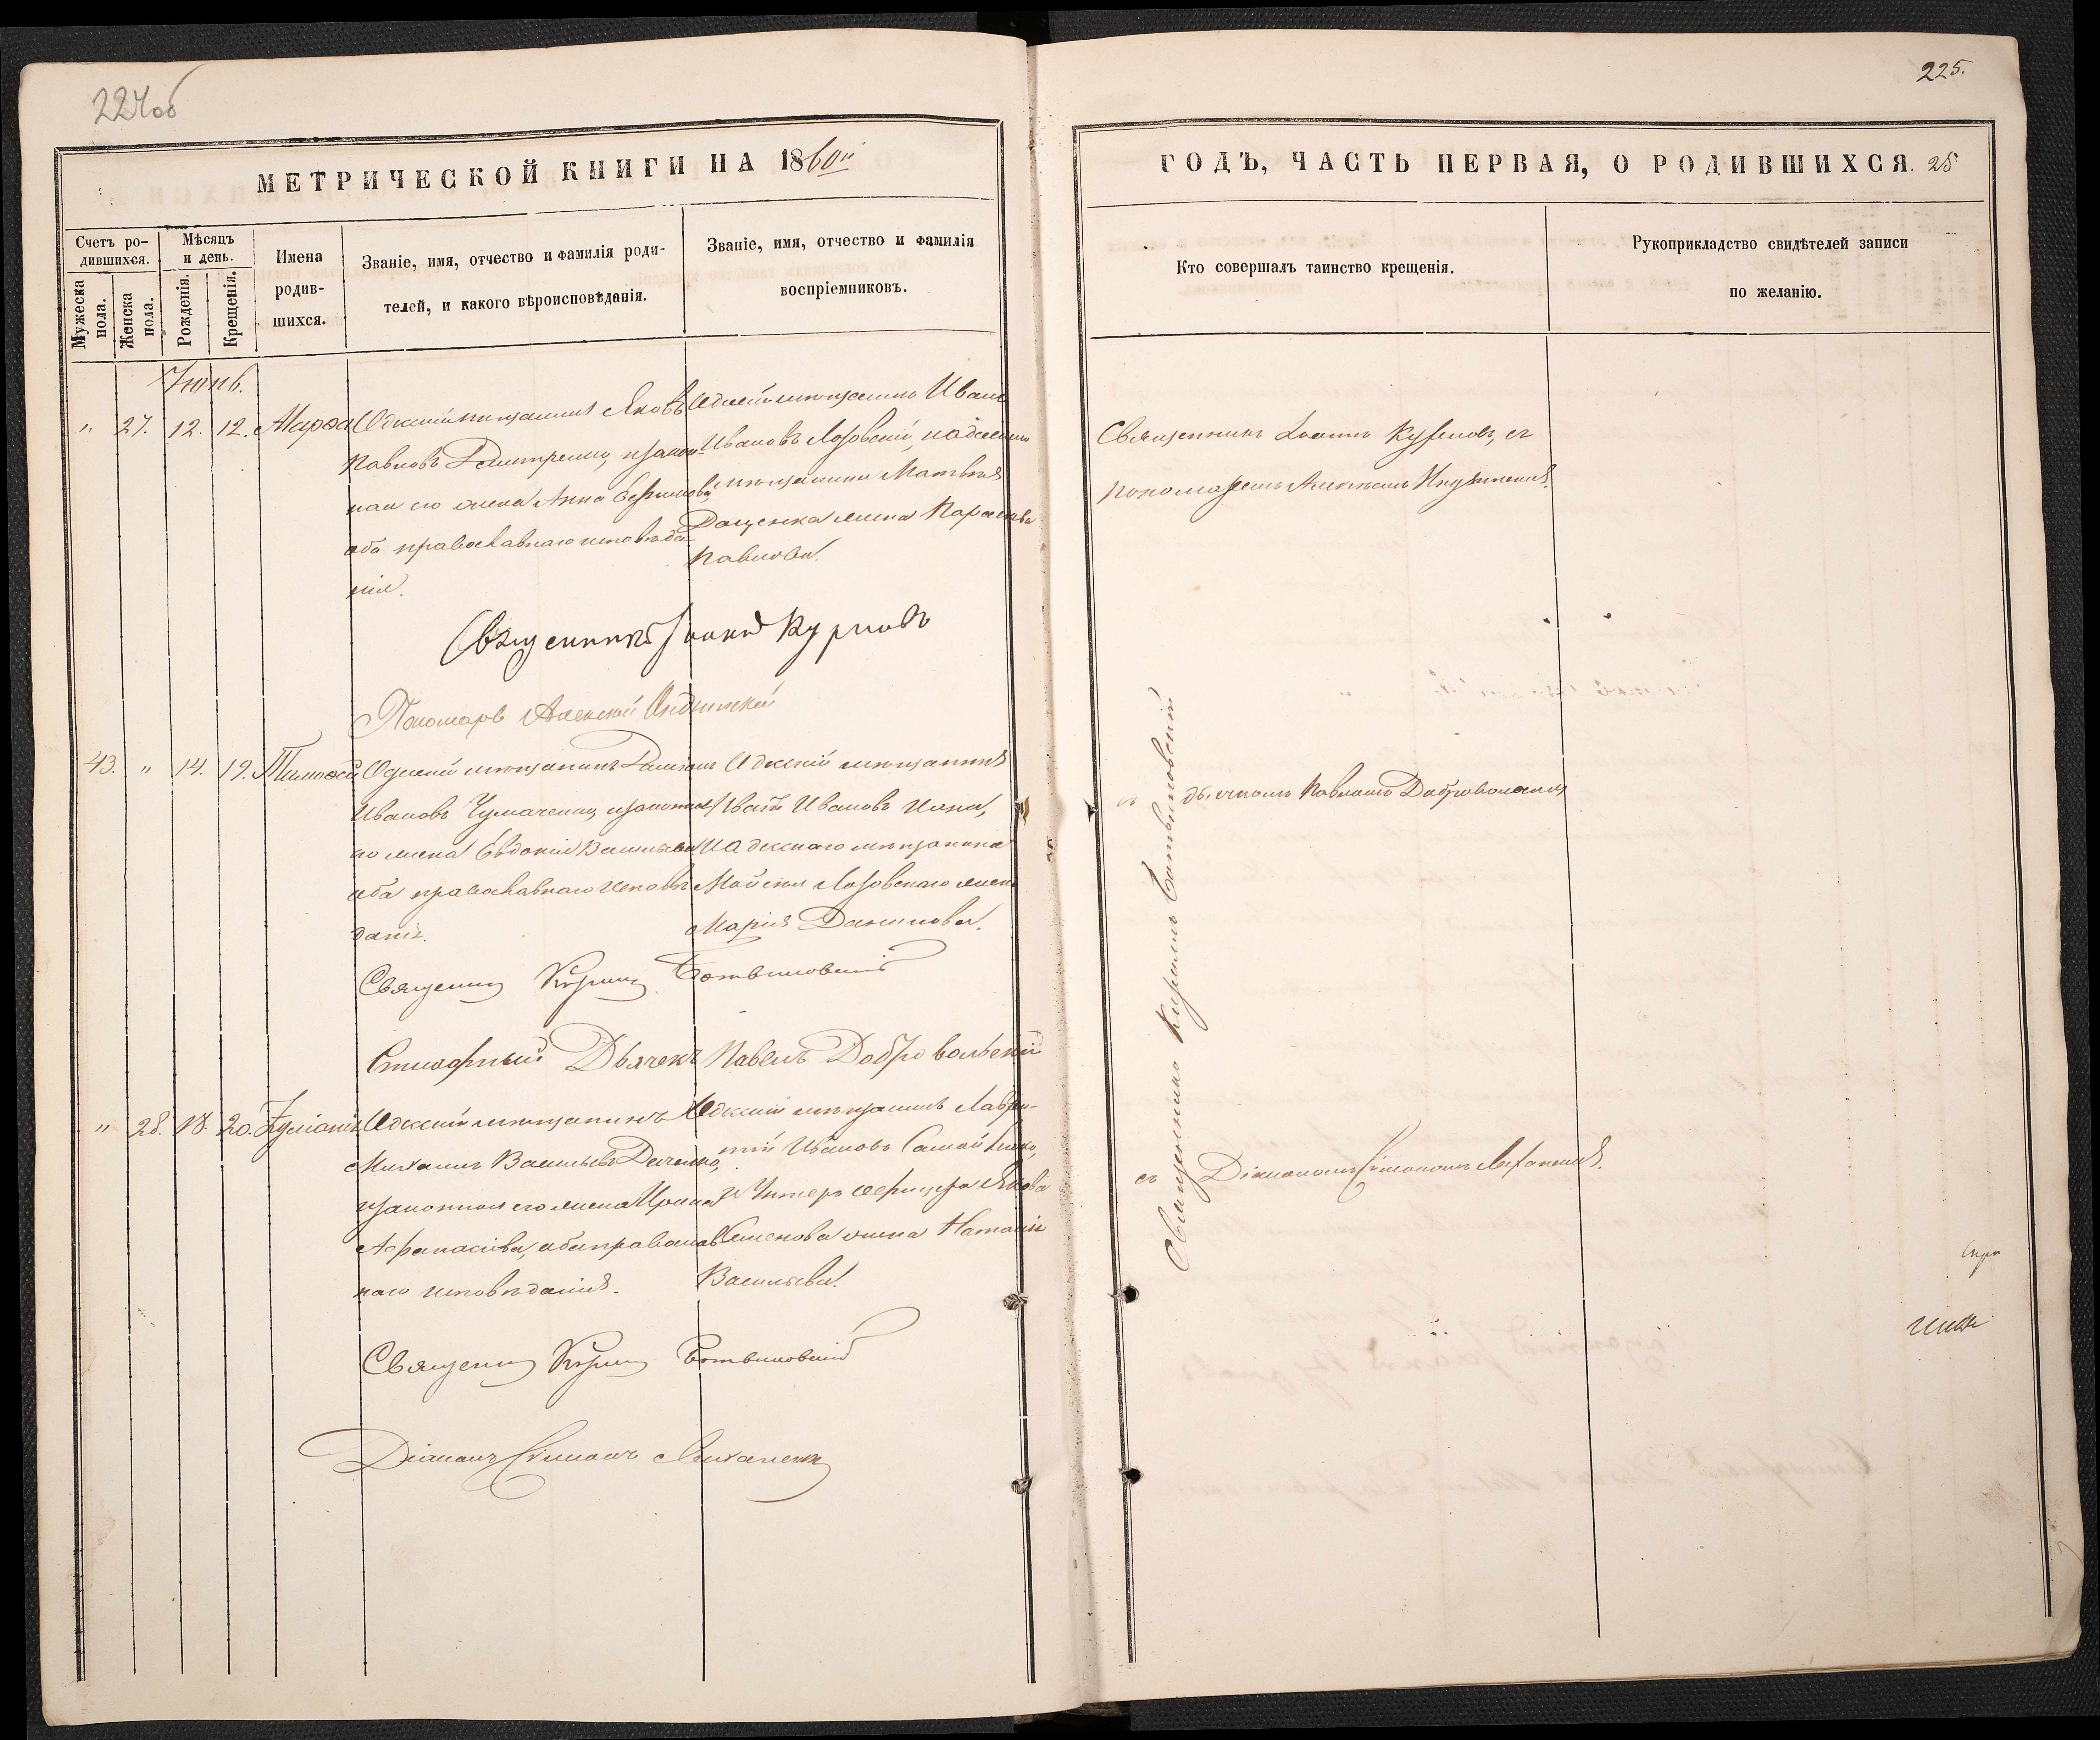 224об
МЕТРИЧЕСКОЙ КНИГИ НА 1860й
Счетъ ро-
дившихся.
Мужеска
пола.
Женска
пола.
Мѣсяцъ
и день.
Рожденія.
Крещенія.
Имена
родив-
шихся.
Званіе, имя, отчество и фамилія роди-
телей, и какого вѣроисповѣданія.
Званіе, имя, отчество и фамилія
воспріемниковъ.
Іюнь.
" 27. 12. 12. Марѳа
Одескій мѣщанинъ Яковъ
Павловъ Дмитренко, закон-
ная его жена Анна
оба православнаго исповѣда-
нія.
Одескій мѣщанинъ Иванъ
Ивановъ Лозовскій, и одескаго
мѣщанина Матвѣя
Даценка жена Параскева
Павлова.
Священникъ Іоаннъ Курловъ
Пономарь Алексѣй
43. " 14. 19. Тимоѳей
Одескій мѣщанинъ Даміанъ
Ивановъ Чумаченко, законная
его жена Евдокія Васильева
оба православнаго исповѣ-
данія.
Одескій мѣщанинъ
Иванъ Ивановъ
и Одесскаго мѣщанина
Моисея Лозовскаго жена
Марія Данилова.
Священник Кирилл Ботвиновскій
Стихарный Дьячекъ Павелъ Добровольскій
" 28. 18. 20. Іуліанія
Одескій мѣщанинъ
Михаилъ Васильевъ
законная его жена Ирина
Афанасіева, оба православ-
наго исповѣданія.
Одескій мѣщанинъ Лаврен-
тій Ивановъ Самойленко,
и Унтеръ офицера Якова
Семенова жена Наталія
Васильева.
Священник Кирилл Ботвиновскій
Діаконъ Симеонъ
225.
ГОДЪ, ЧАСТЬ ПЕРВАЯ, О РОДИВШИХСЯ. 25
Кто совершалъ таинство крещенія.
Рукоприкладство свидѣтелей записи
по желанію.
Священникъ Іоаннъ Курловъ, съ
пономаремъ Алексѣемъ
Священникъ Кириллъ Ботвиновскій
съ дьячкомъ Павломъ Добровольскимъ
съ Діакономъ Симеономъ